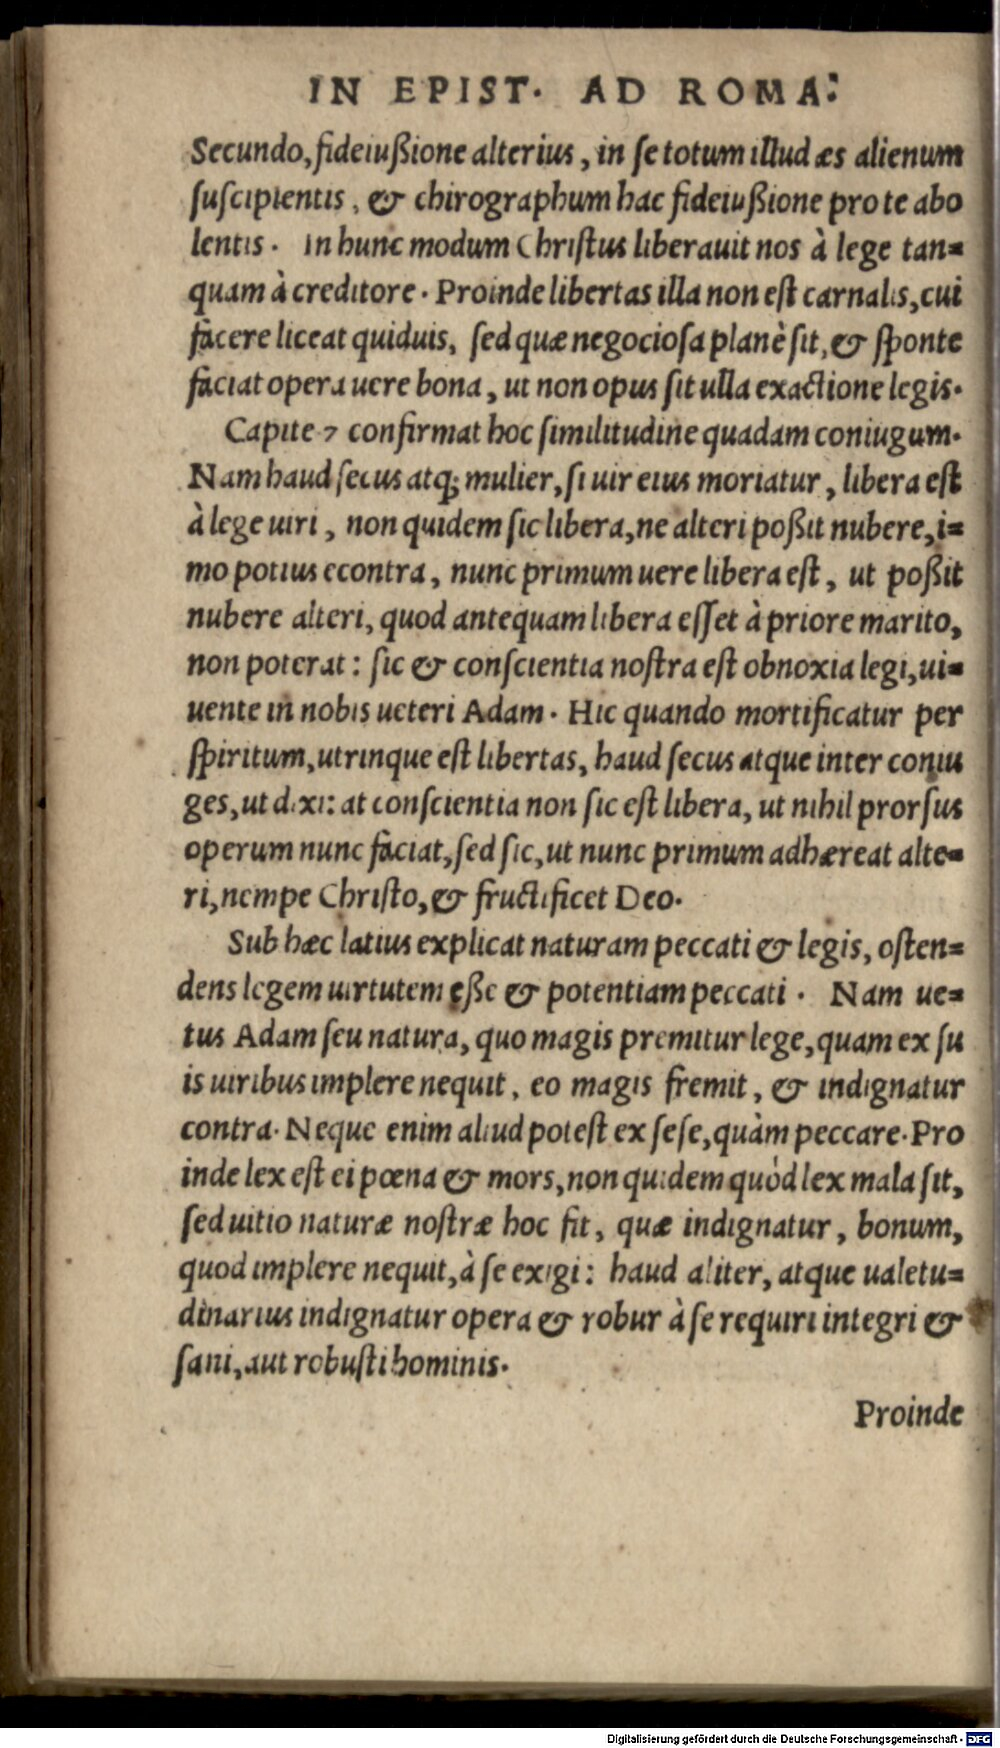 IN EPIST. AD ROMA:
Secundo, fideiußione alterius, in se totum illud æs alienum
suscipientis, & chirographum hac fideiußione pro te abo
lentis. In hunc modum Christus liberauit nos à lege tan=
quam à creditore. Proinde libertas illa non est carnalis, cui
facere liceat quiduis, sed quæ negociosa planè sit, & sponte
faciat opera uere bona, ut non opus sit ulla exactione legis.
Capite 7 confirmat hoc similitudine quadam coniugum.
Nam haud secus atq; mulier, si uir eius moriatur, libera est
à lege uiri, non quidem sic libera, ne alteri poßit nubere, i=
mo potius econtra, nunc primum uere libera est, ut poßit
nubere alteri, quod antequam libera esset à priore marito,
non poterat: sic & conscientia nostra est obnoxia legi, ui=
uente in nobis ueteri Adam. Hic quando mortificatur per
spiritum, utrinque est libertas, haud secus atque inter coniu
ges, ut dixi: at conscientia non sic est libera, ut nihil prorsus
operum nunc faciat, sed sic, ut nunc primum adhæreat alte=
ri, nempe Christo, & fructificet Deo.
Sub hæc latius explicat naturam peccati & legis, osten=
dens legem uirtutem eße & potentiam peccati. Nam ue=
tus Adam seu natura, quo magis premitur lege, quam ex su
is uiribus implere nequit, eo magis fremit, & indignatur
contra. Neque enim aliud potest ex sese, quàm peccare. Pro
inde lex est ei pœna & mors, non quidem quòd lex mala sit,
sed uitio naturæ nostræ hoc fit, quæ indignatur, bonum,
quod implere nequit, à se exigi: haud aliter, atque ualetu=
dinarius indignatur opera & robur à se requiri integri &
sani, aut robusti hominis.
Proinde
Digitalisierung gefördert durch die Deutsche Forschungsgemeinschaft - DFG